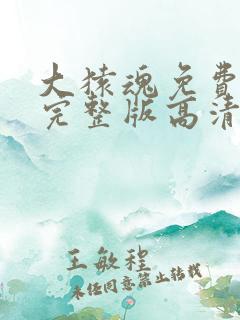 大猿魂免费
完整版高清
王敏程
未经同意禁止转载